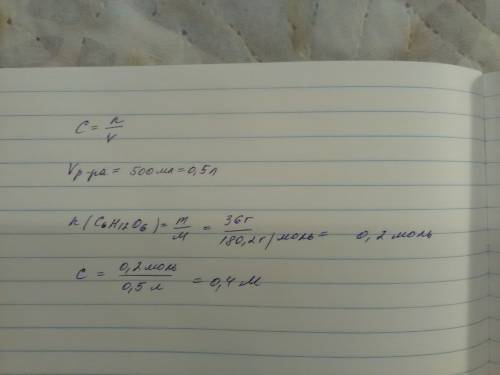 C = n/V
Vр-ра = 500мл = 0,5л
n(C6H12O6) = m/M = 36г/180,2г/моль = 0,2 моль
C = 0,2 моль/0,5 л = 0,4 М